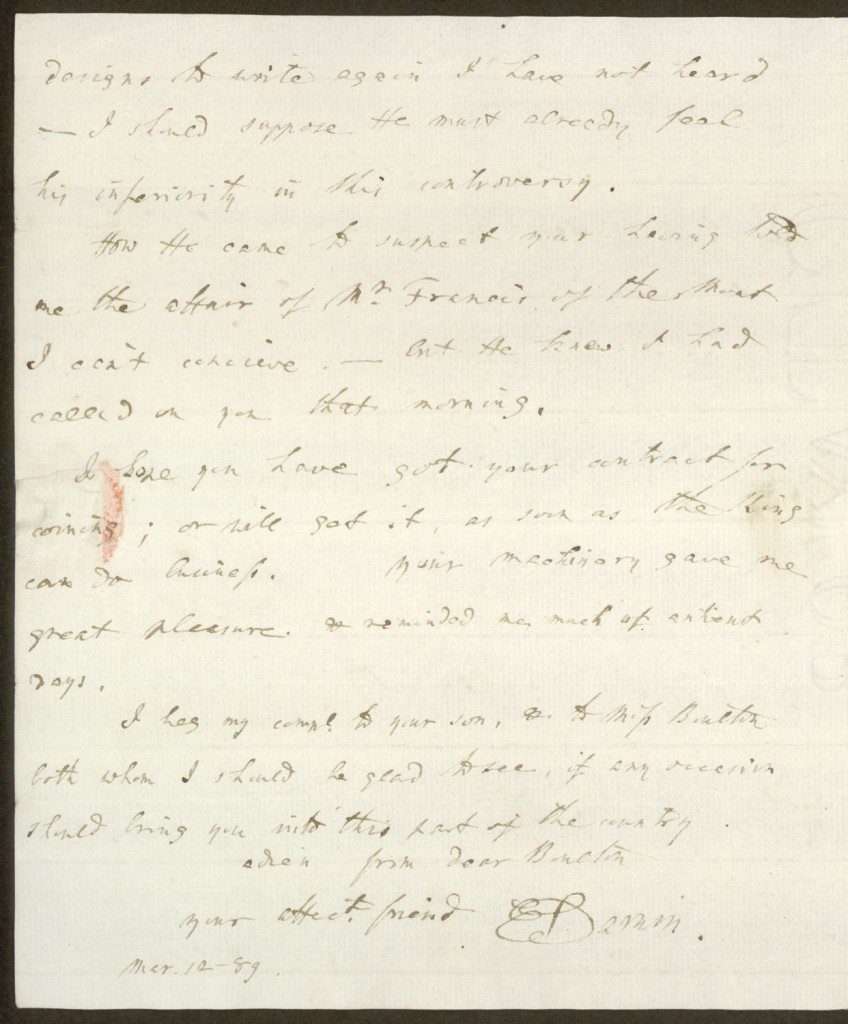 designs to write again I have not heard
— I should suppose He must already feel
his inferiority in this controversy.
How He came to suspect your having told
me the affair of Mr. Francis of the Moat
I can't concieve. — but He knew I had
called on you that morning.
I hope you have got your contract for
coining; or will get it, as soon as the King
can do business. Your machinery gave me
great pleasure & reminded me much of antient
days.
I beg my compl. to your son, & to Miss Boulton
both whom I should be glad to see, if any occasion
should bring you into this part of the country.
adieu from dear Boulton
your affect. friend E Darwin.
Mar. 12-89.